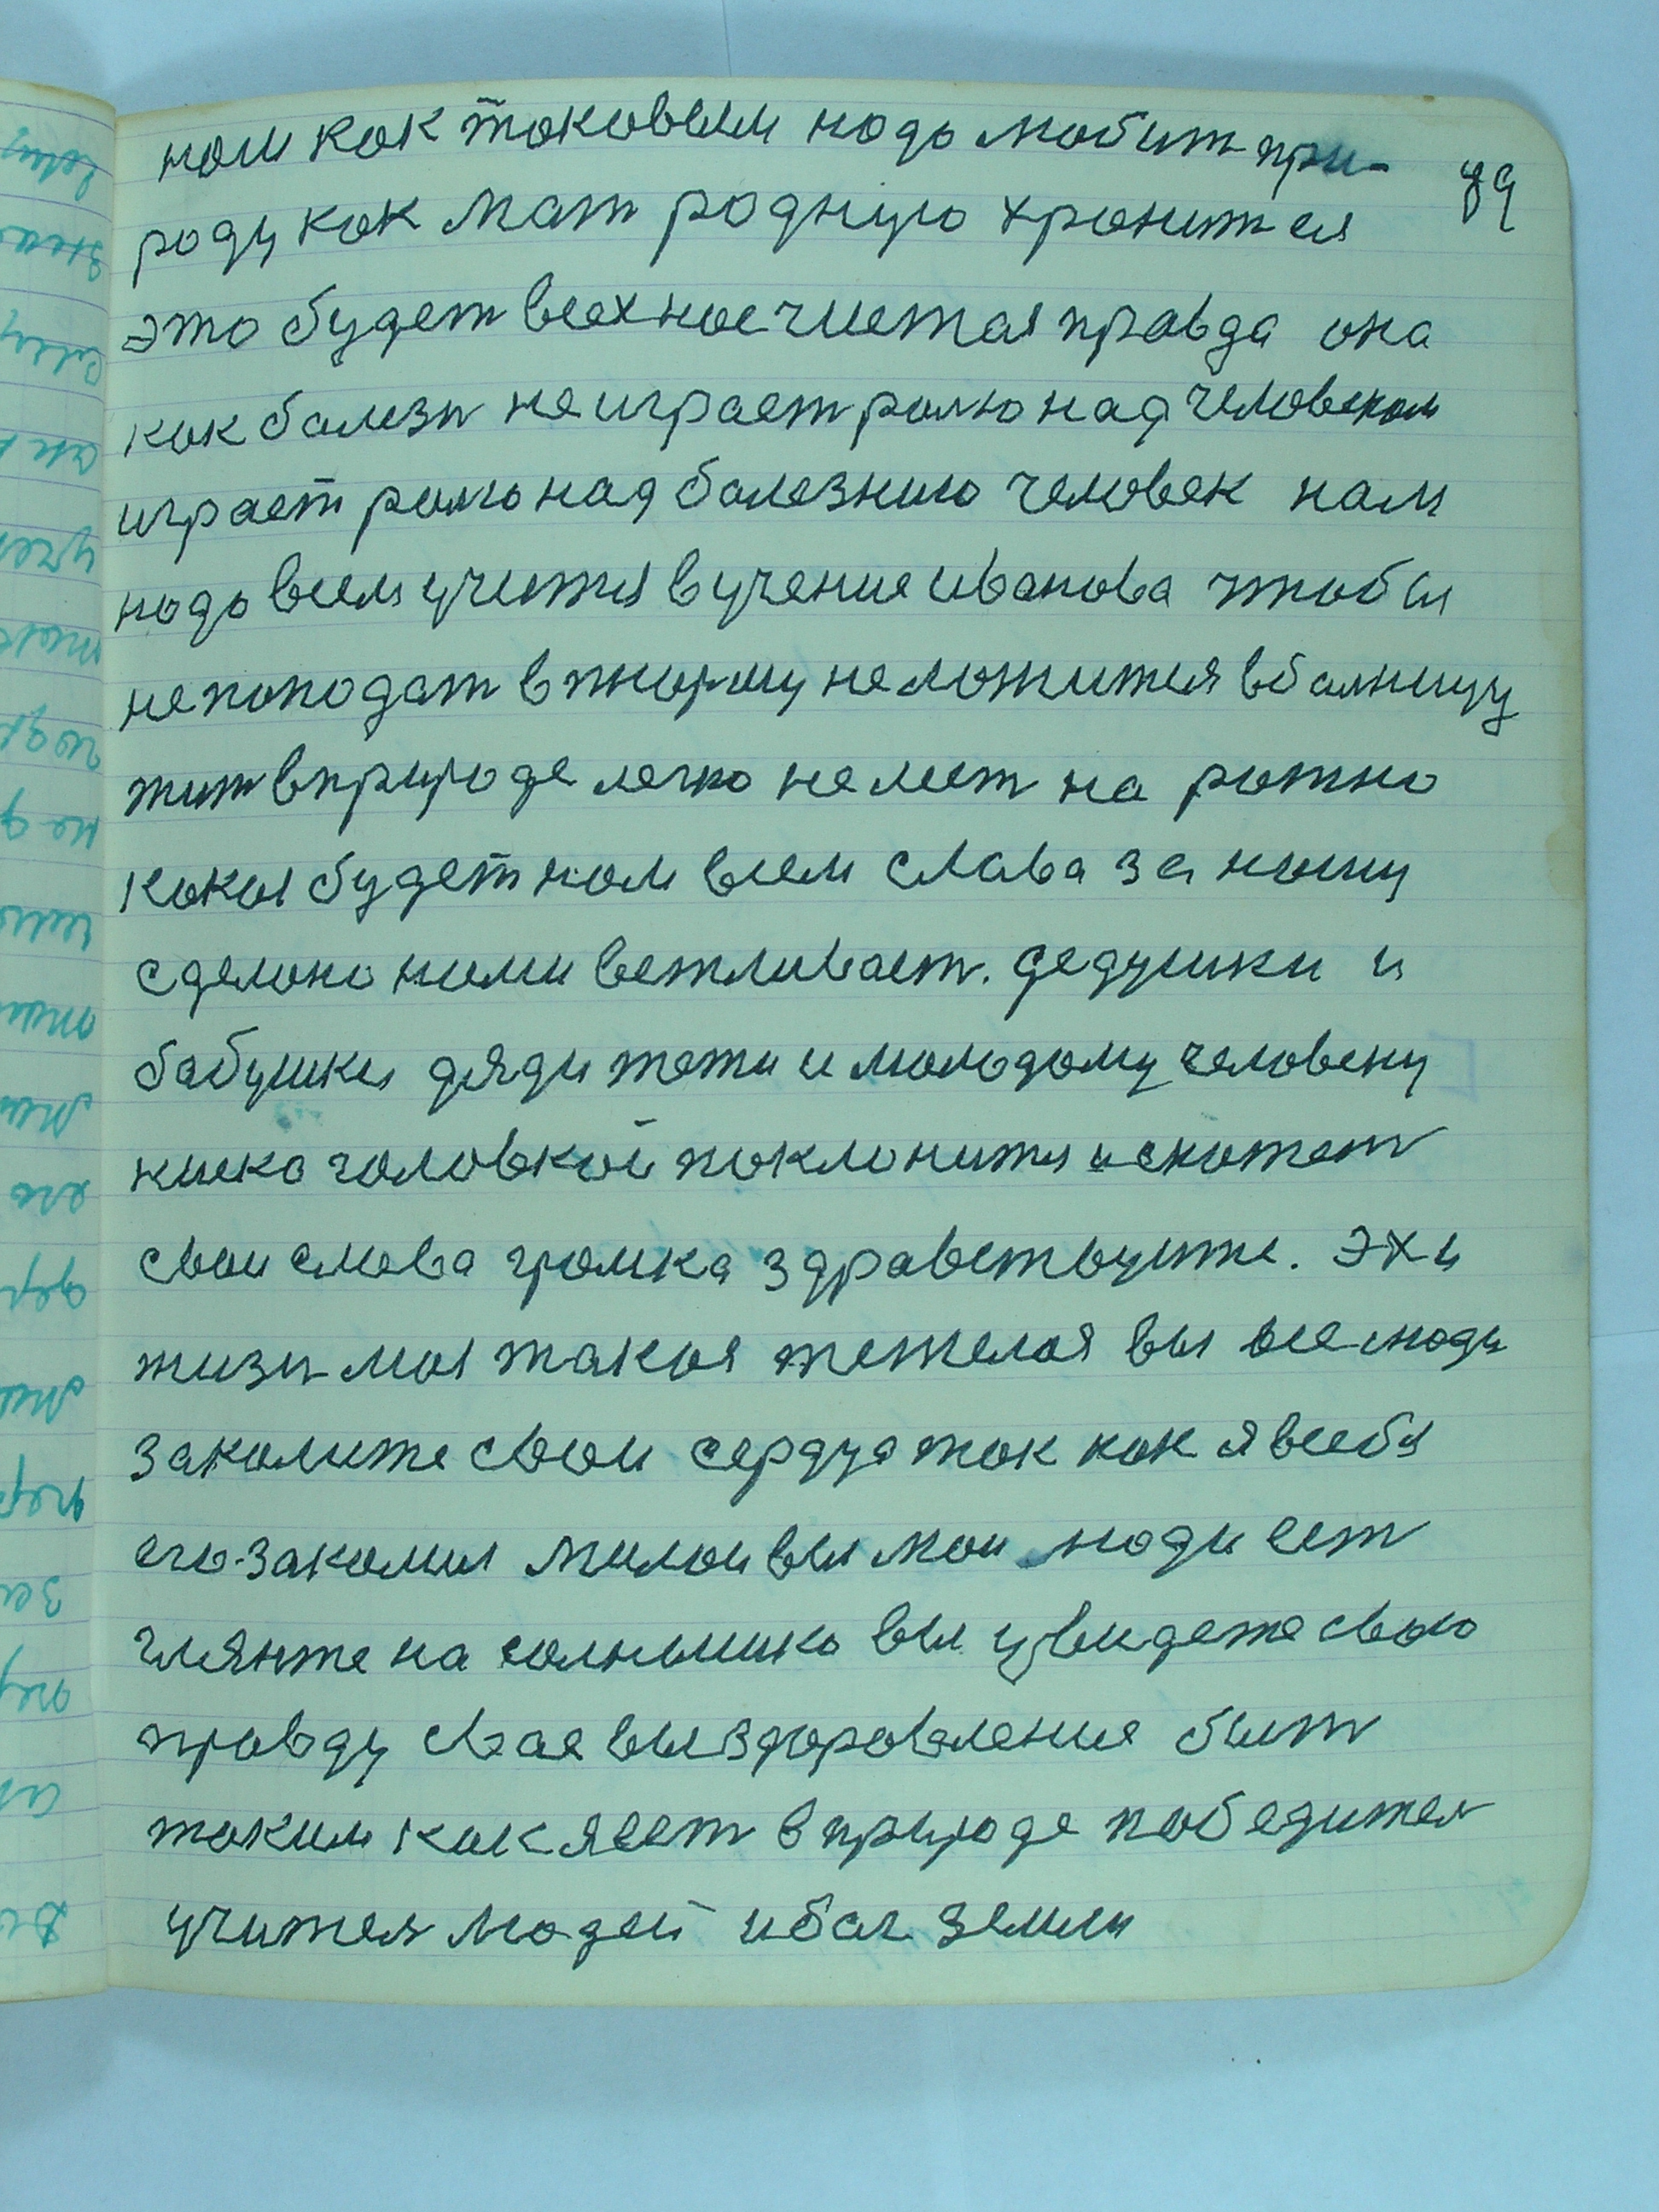 89
нам как таковым надо любит при-
роду как мат родную хранит ея
это будет всех нас чистая правда она
как балезн не играет ролю над человеком
играет ролю над балезнию человек нам
надо всем учится в учение иванова чтобы
не пападат в тюрму не ложится в балницу
жит в природе легко не лест на ражно
какая будет нам всем слава за нашу
сделано нами вежливаст. дедушки и
бабушки дяди тети и молодому человеку
ниско головкой поклонится и скажет
свои слова громка здравствуите. эх и
жизн моя такая тежелая вы все люди
закалите свои сердца так как я в себя
его закалил милои вы мои люди ест
гляните на солнышко вы увидете свою
правду свае выздоровление быт
таким как я ест в природе победител
учител людей и бог земли